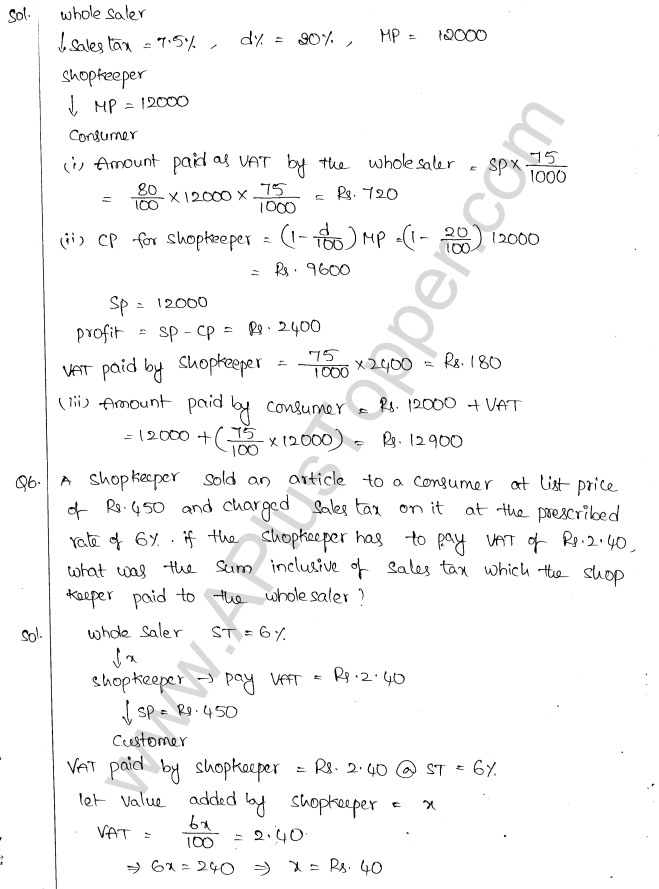 Sol. whole saler
↓ Sales tax = 7.5% , d% = 20% , MP = 12000
Shopkeeper
↓ MP = 12000
Consumer
(i) Amount paid as VAT by the wholesaler = SP × 75/1000
= 80/100 × 12000 × 75/1000 = Rs. 720
(ii) CP for shopkeeper = (1 - d/100) MP = (1 - 20/100) 12000
= Rs. 9600
SP = 12000
profit = SP - CP = Rs. 2400
VAT paid by shopkeeper = 75/1000 × 2400 = Rs. 180
(iii) Amount paid by consumer = Rs. 12000 + VAT
= 12000 + (75/100 × 12000) = Rs. 12900
Q6. A shopkeeper sold an article to a consumer at list price
of Rs. 450 and charged sales tax on it at the prescribed
rate of 6%. if the shopkeeper has to pay VAT of Rs. 2.40,
what was the sum inclusive of sales tax which the shop
keeper paid to the wholesaler?
Sol. whole saler ST = 6%
↓x
shopkeeper → pay VAT = Rs. 2.40
↓ SP = Rs. 450
Customer
VAT paid by shopkeeper = Rs. 2.40 @ ST = 6%
let value added by shopkeeper = x
VAT = 6x/100 = 2.40
⇒ 6x = 240 ⇒ x = Rs. 40
www.APlusTopper.com